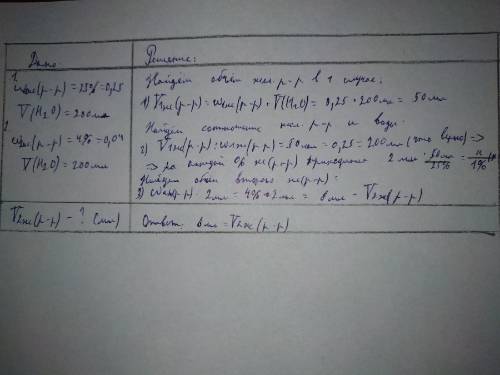 Дано
Решение:
1.
ω₁ж(р-р) = 25% = 0,25
V(H₂O) = 200мл
2.
ω₂ж(р-р) = 4% = 0,04
V(H₂O) = 200мл
V₂ж(р-р) - ? (мл)
Найдём объём жел. р-р в 1 случае:
1) V₁ж(р-р) = ω₁ж(р-р) · V(H₂O) = 0,25 · 200мл = 50мл
Найдём соотношение жел. р-р и воды:
2) V₁ж(р-р) : ω₁ж(р-р) = 50мл : 0,25 = 200мл (что верно) =>
=> на каждый 0% ж(р-р) приходится 2 мл 50мл/25% = x/1%
Найдём объём второго ж(р-р):
3) ω₂ж(р-р) · 2мл = 4% · 2мл = 8мл - V₂ж(р-р)
Ответ: 8мл = V₂ж(р-р)